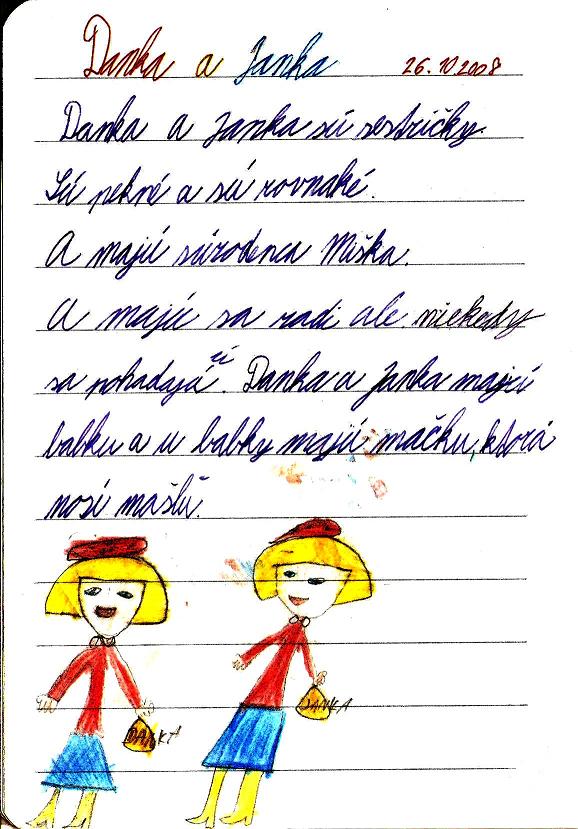 Danka a Janka 26.10 2008
Danka a Janka sú sestričky.
Sú pekné a sú rovnaké.
A majú súrodenca Miška.
A majú sa radi ale niekedy
sa pohadajá ú. Danka a Janka majú
babku a u babky majú mačku, ktorá
nosí mašlú.
DANKA
JANKA